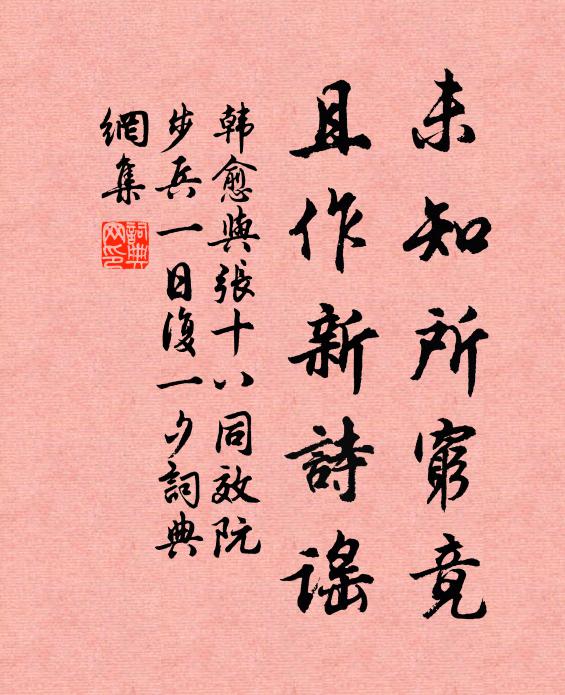 未知所窮竟
且作新詩謠
韩愈與張十八同效阮
步兵一日復一夕詞典
網集
詞典
网印